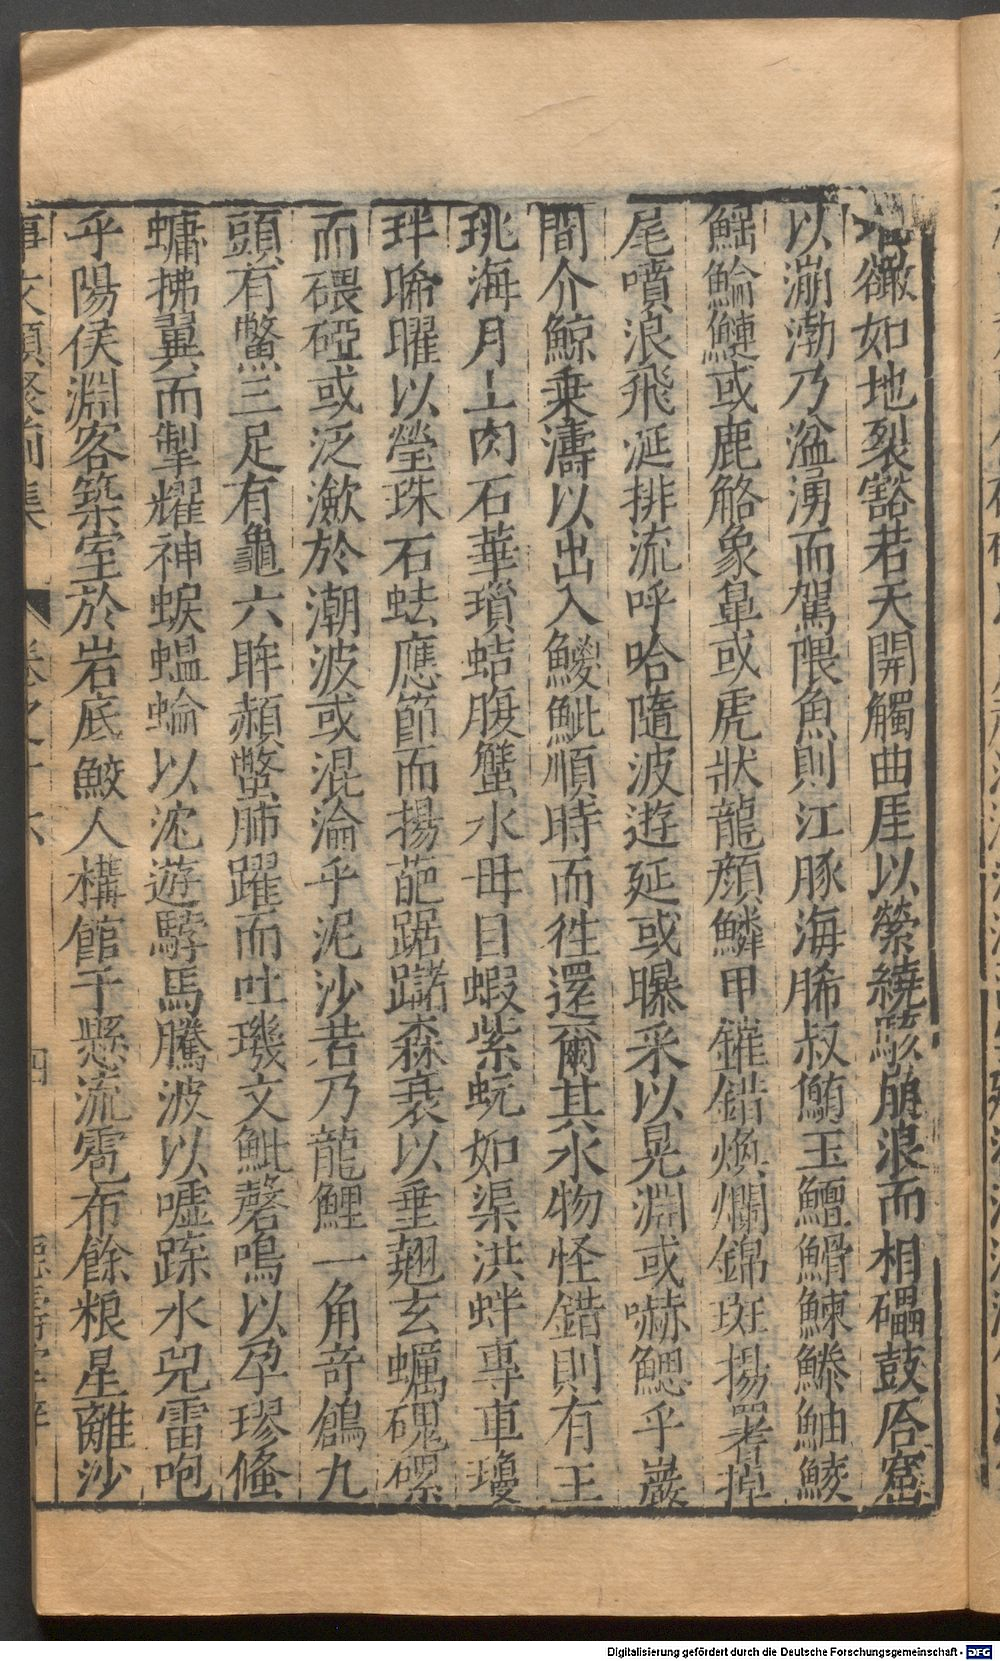 澉如地裂豁若天開觸曲厓以縈繞駭崩浪而相礧鼓𠯗窟
以漰渤乃湓湧而駕隈魚則江豚海狶叔鮪王鱣䱻鰊䲍鮋鯪
鰩鯩鰱或鹿觡象鼻或虎狀龍顏鱗甲鏙錯煥爛錦斑揚鬐掉
尾噴浪飛涎排流呼哈隨波遊延或曝采以晃淵或嚇鰓乎巖
間介鯨乗濤以出入鯼鮆順時而徃還爾其水物怪錯則有王
珧海月土肉石華瑣蛣腹蟹水母目蝦紫蚢如渠洪蚶專車瓊
蚌晞曜以瑩珠石蚨應節而揚葩踞䠧森衰以垂翹玄蠣磈磥
而碨䃁或泛瀲於潮波或混淪乎泥沙若乃龍鯉一角奇鶬九
頭有鱉三足有龜六眸赬蟞胏躍而吐璣文魮磬鳴以孕璆儵
𧔥拂翼而掣耀神蜧蝹蜦以沈遊騂馬騰波以噓蹀水兕雷咆
乎陽侯淵客築室於岩底鮫人構館于懸流雹布餘粮星離沙
事文類聚前集 卷之十六 四
Digitalisierung gefördert durch die Deutsche Forschungsgemeinschaft - DFG